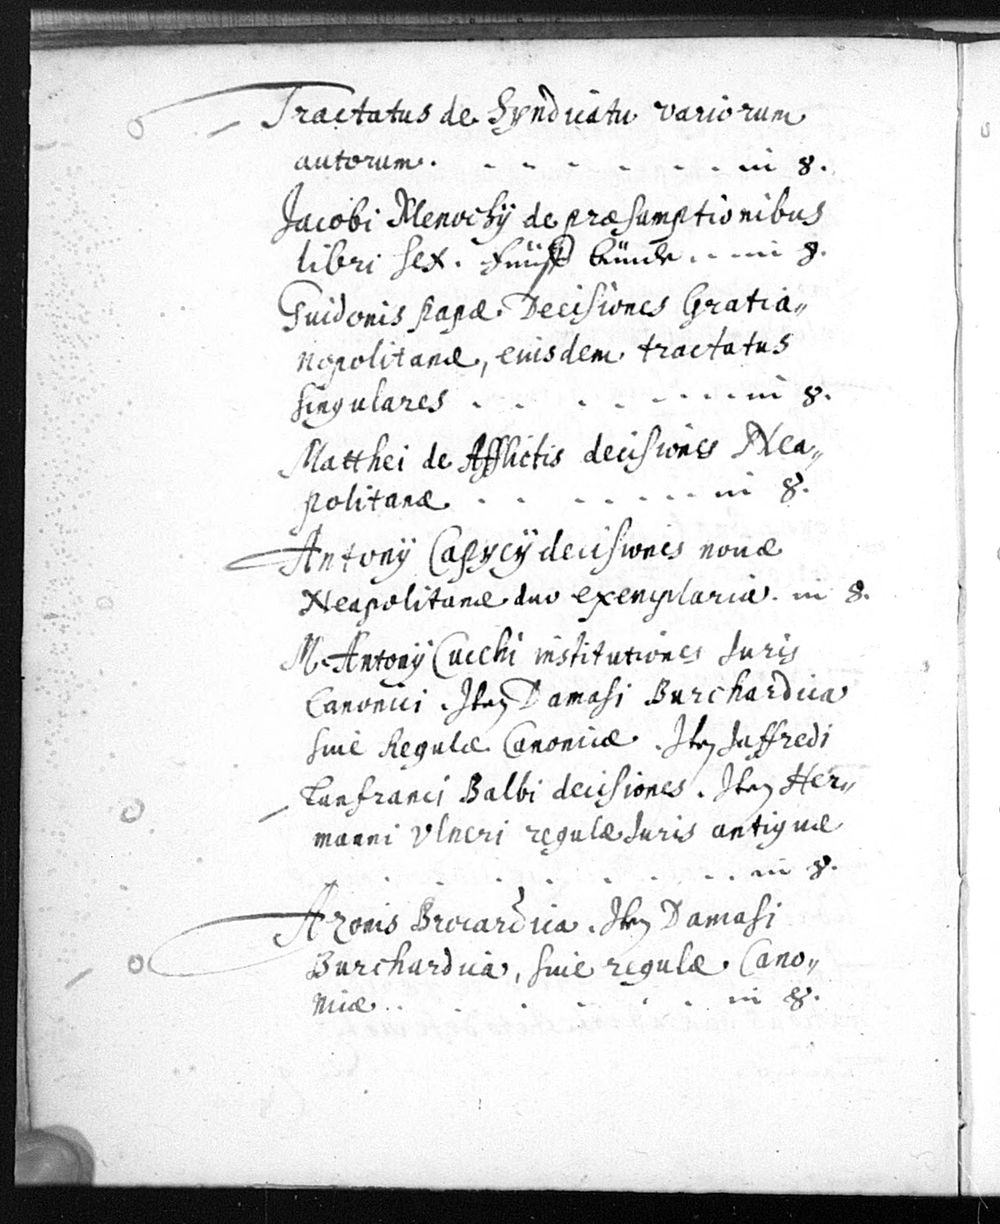 Tractatus de Syndicatu variorum
autorum. - - - - - - in 8.
Jacobi Menochij de præsumptionibus
libri sex. fünff bünde .. in 8.
Guidonis papæ Decisiones Gratia„
nopolitanæ, eiusdem tractatus
singulares . . . - . - - in 8.
Matthei de Afflictis decisiones Nea„
politanæ - - - - - - - in 8.
Antonij Capycij decisiones nouæ
Neapolitanæ duo exemplaria. in 8.
M. Antonij Cucchi institutiones Juris
Canonici. Itē Damasi Burchardica
siue Regulæ Canonicæ. Itē Jaffredi
Lanfranci Balbi decisiones. Itē Her„
manni Vlneri regulæ Juris antiquæ
. . . . . . . . in 8.
Azonis Brocardica. Itē Damasi
Burchardica, siue regulæ Cano„
nicæ .. . . . . . . in 8.